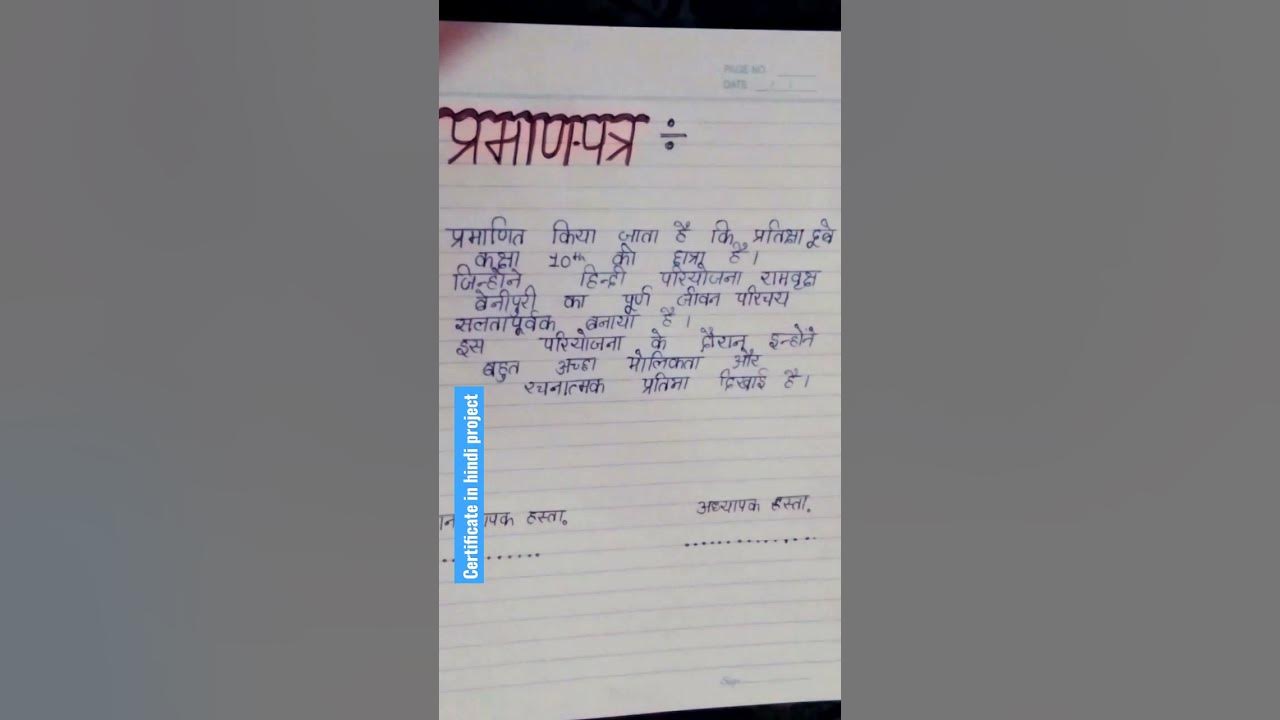 PAGE NO.
DATE / /
प्रमाण-पत्र ÷
प्रमाणित किया जाता है कि प्रतिक्षा दूबे
कक्षा 10th की छात्रा है।
जिन्होंने हिन्दी परियोजना रामवृक्ष
बेनीपुरी का पूर्ण जीवन परिचय
सलतापूर्वक बनाया है।
इस परियोजना के दौरान इन्होंने
बहुत अच्छा मौलिकता और
रचनात्मक प्रतिमा दिखाई है।
हस्ता.
अध्यापक हस्ता.
Certificate in hindi project